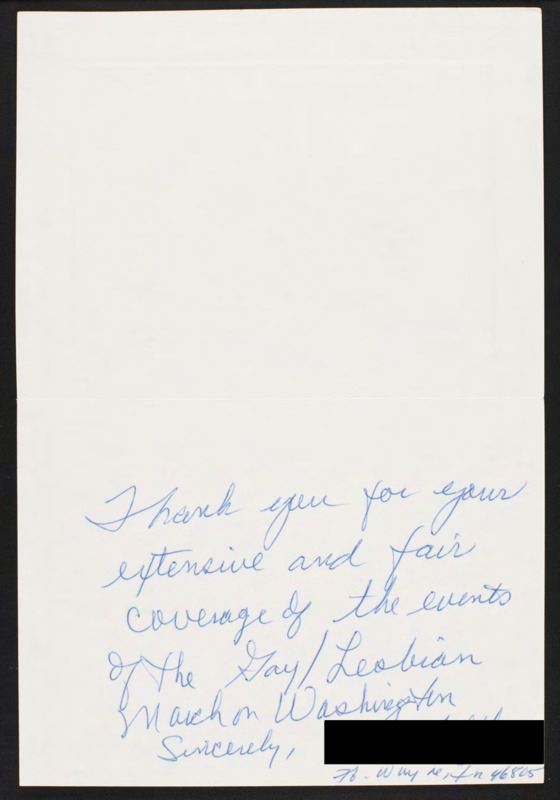 Thank you for your
extensive and fair
coverage of the events
of the Gay/Lesbian
March on Washington
Sincerely,
Ft. Wayne, In 46805